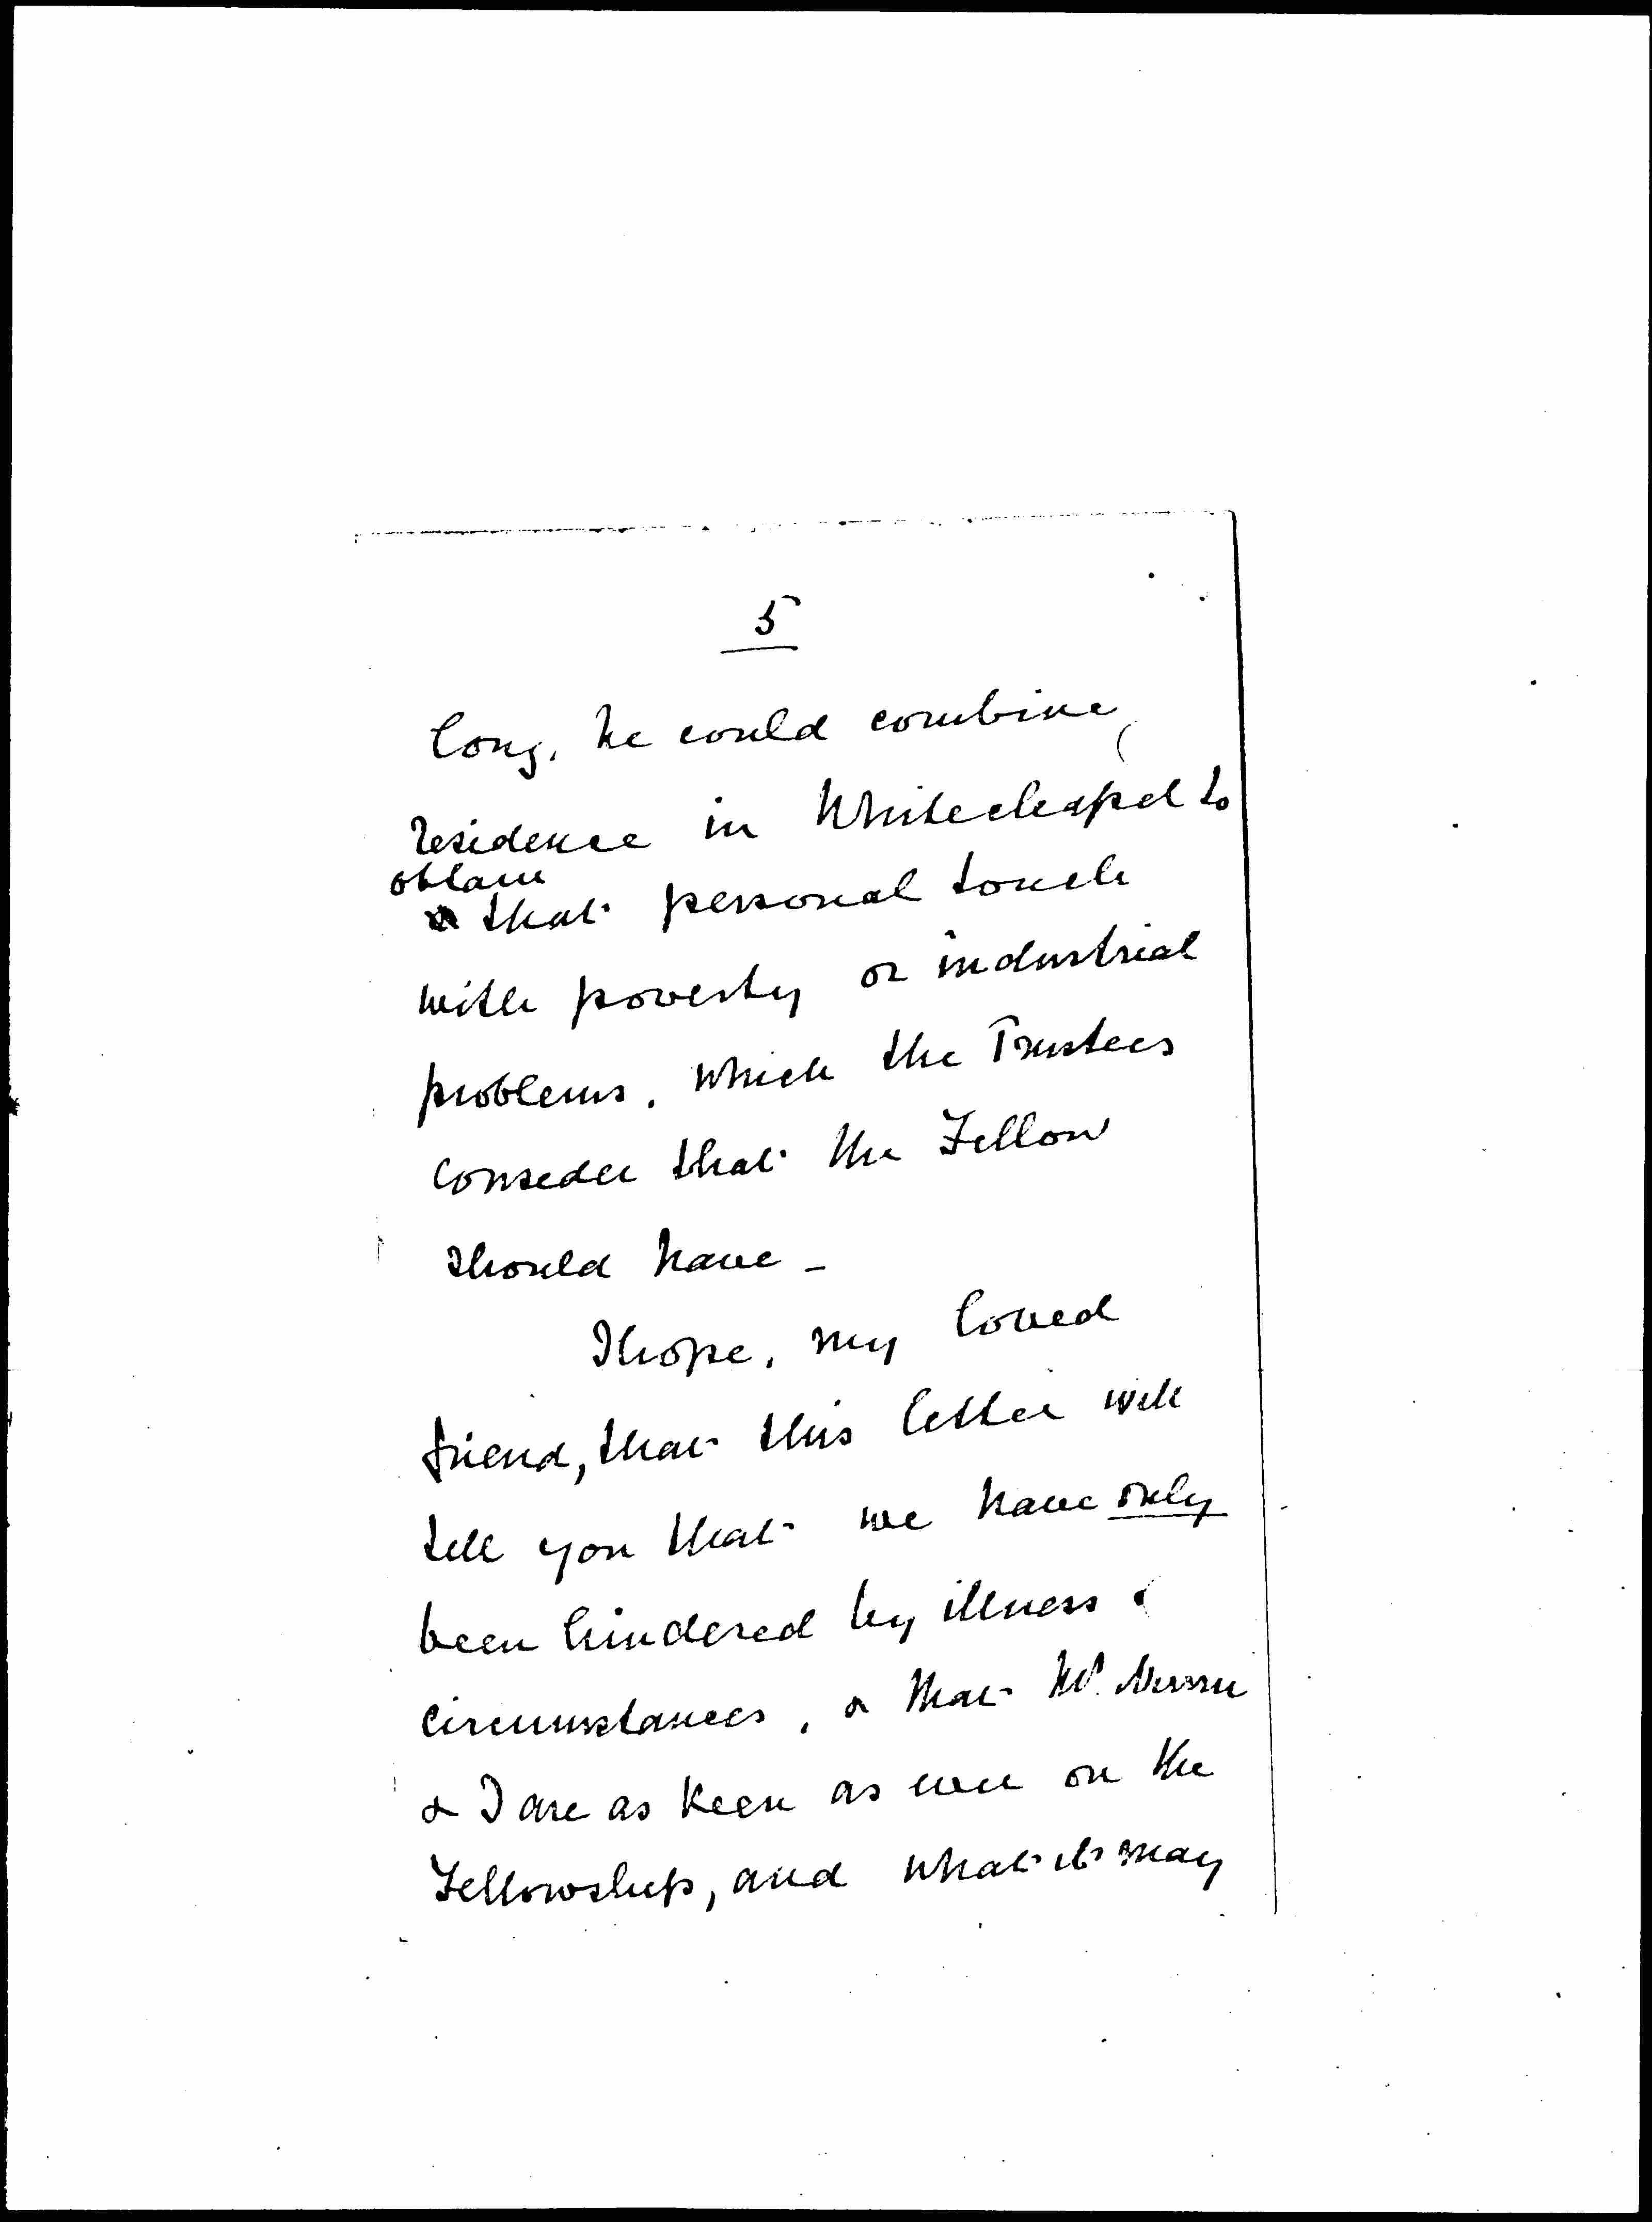 5
long, he could combine
residence in Whitechapel to
obtain
that personal touch
with poverty or industrial
problems, which the Trustees
consider that the Fellow
should have -
I hope, my loved
friend, that this letter will
tell you that we have only
been hindered by illness &
circumstances, & that Mr.
& I are as keen as ever on the
Fellowship, and what it may